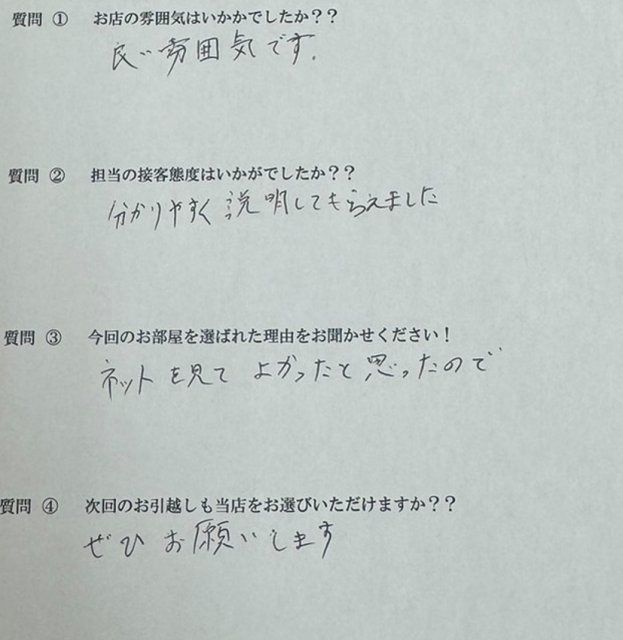 質問 ① お店の雰囲気はいかがでしたか？？
良い雰囲気です.
質問 ② 担当の接客態度はいかがでしたか？？
分かりやすく説明してもらえました
質問 ③ 今回のお部屋を選ばれた理由をお聞かせください！
ネットを見てよかったと思ったので
質問 ④ 次回のお引越しも当店をお選びいただけますか？？
ぜひお願いします